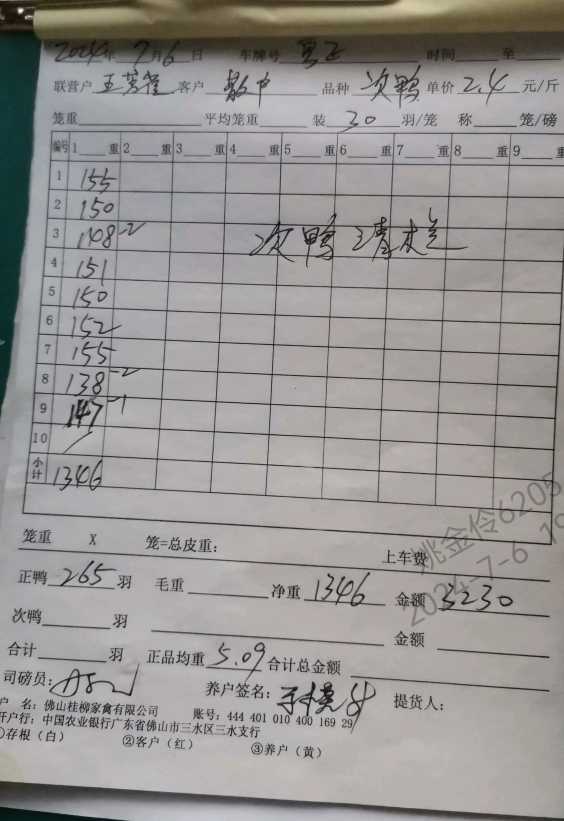 2024年 7月 6日 车牌号 时间 至
联营户 王芳崔 客户 散户 品种 次鸭 单价 2.4 元/斤
笼重 平均笼重 装 30 羽/笼 称 笼/磅
编号 1 重 2 重 3 重 4 重 5 重 6 重 7 重 8 重 9 重
1 155
2 150
3 148-2 次鸭清栏
4 151
5 150
6 152
7 155
8 138-2
9 147-1
10
小计 1346
笼重 X 笼=总皮重: 上车费
正鸭 265 羽 毛重 净重 1346 金额 3230
次鸭 羽 金额
合计 羽 正品均重 5.09 合计总金额
司磅员: 养户签名: 提货人:
户 名: 佛山桂柳家禽有限公司 账号: 444 401 010 400 169 29
开户行: 中国农业银行广东省佛山市三水区三水支行
①存根(白) ②客户(红) ③养户(黄)
姚金伶6205
2024-7-6 19